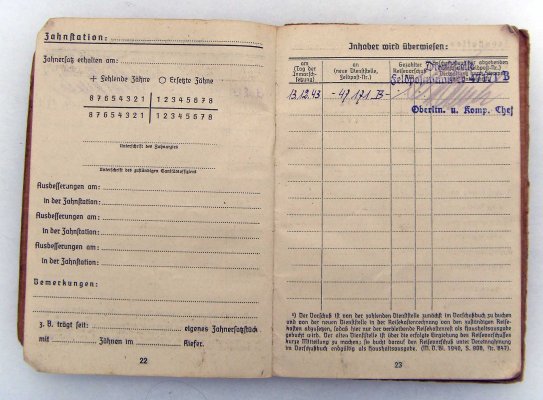 Zahnstation:
Zahnersatz erhalten am:
+ Fehlende Zähne ○ Ersetzte Zähne
8 7 6 5 4 3 2 1 | 1 2 3 4 5 6 7 8
8 7 6 5 4 3 2 1 | 1 2 3 4 5 6 7 8
Unterschrift des Zahnarztes
Unterschrift des zuständigen Sanitätsoffiziers
Ausbesserungen am:
in der Zahnstation:
Ausbesserungen am:
in der Zahnstation:
Ausbesserungen am:
in der Zahnstation:
Bemerkungen:
z. B. trägt seit: eigenes Zahnersatzstück
mit Zähnen im Kiefer.
22
Inhaber wird überwiesen:
am (Tag der Inmarschsetzung)
an (neue Dienststelle, Feldpost-Nr.)
Gezahlter
Feldpostnummer 47171 B
13.12.43 -47 171 B-
Oberltn. u. Komp. Chef
¹) Der Vorschuß ist von der zahlenden Dienststelle zunächst im Vorschußbuch zu buchen
und von der neuen Dienststelle in der Reisekostenrechnung von den zuständigen Reise-
kosten abzusetzen, sodaß hier nur der verbleibende Reisekostenrest als Haushaltsausgabe
gebucht wird. Der alten Dienststelle ist über die erfolgte Einziehung des Reisevorschusses
kurze Mitteilung zu machen; sie bucht darauf den Reisevorschuß unter Vereinnahmung
im Vorschußbuch endgültig als Haushaltsausgabe. (H. V. Bl. 1940, S. 808, Nr. 847).
23